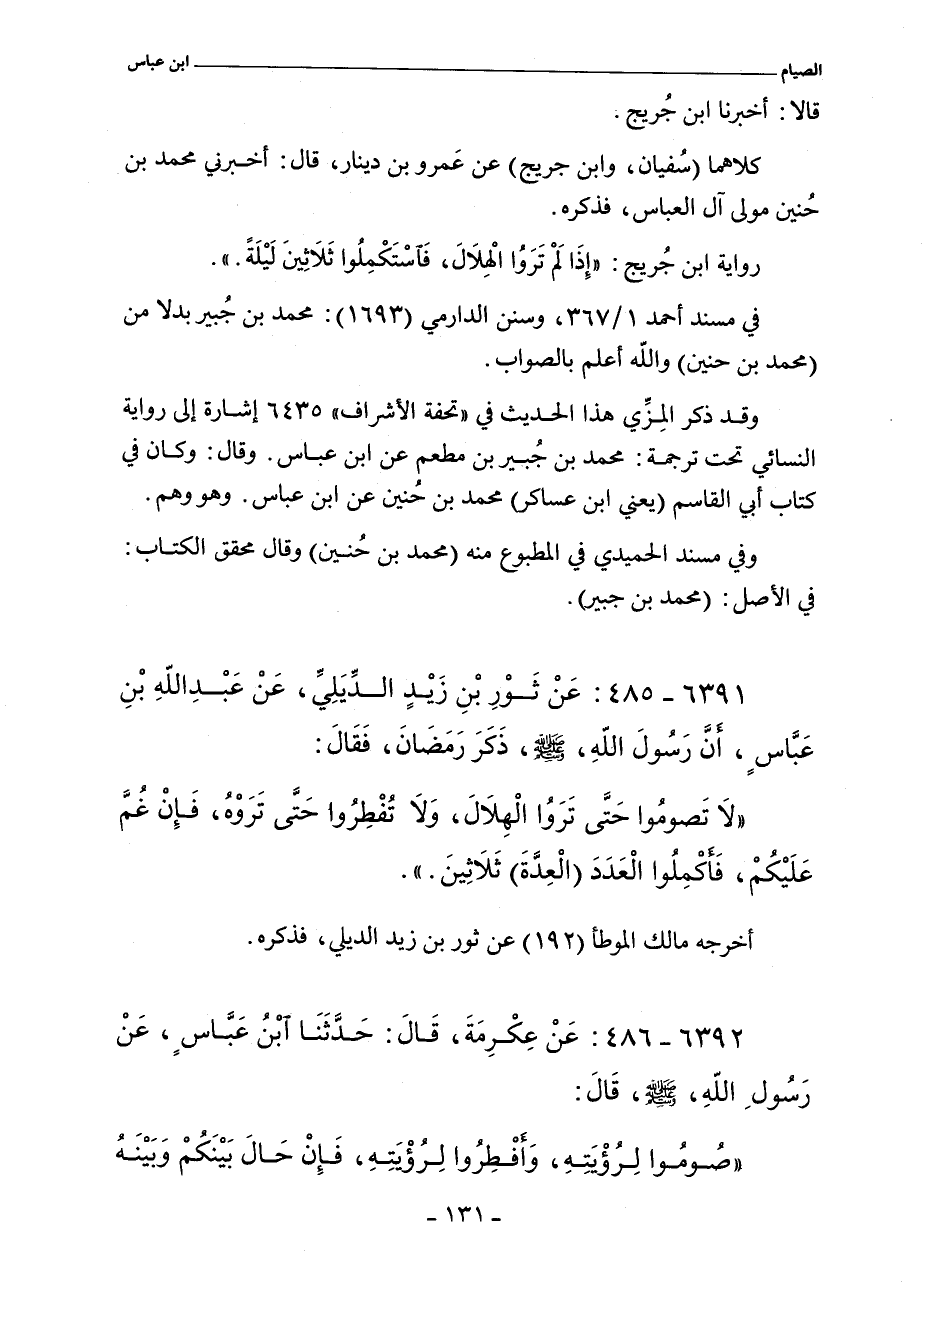 الصيام ــــــــــــــــــــ ابن عباس
قالا: أخبرنا ابن جُريج.
كلاهما (سُفيان، وابن جريج) عن عَمرو بن دينار، قال: أخبرني محمد بن
حُنين مولى آل العباس، فذكره.
رواية ابن جريج: «إِذَا لَمْ تَرَوُا الْهِلَالَ، فَٱسْتَكْمِلُوا ثَلَاثِينَ لَيْلَةً.».
في مسند أحمد ٣٦٧/١، وسنن الدارمي (١٦٩٣): محمد بن جُبير بدلا من
(محمد بن حنين) والله أعلم بالصواب.
وقد ذكر المِزِّي هذا الحديث في «تحفة الأشراف» ٦٤٣٥ إشارة إلى رواية
النسائي تحت ترجمة: محمد بن جُبير بن مطعم عن ابن عباس. وقال: وكان في
كتاب أبي القاسم (يعني ابن عساكر) محمد بن حُنين عن ابن عباس. وهو وهم.
وفي مسند الحميدي في المطبوع منه (محمد بن حُنين) وقال محقق الكتاب:
في الأصل: (محمد بن جبير).
٦٣٩١ - ٤٨٥: عَنْ ثَوْرِ بْنِ زَيْدٍ الدِّيَلِيِّ، عَنْ عَبْدِاللّهِ بْنِ
عَبَّاسٍ، أَنَّ رَسُولَ اللّهِ، ﷺ، ذَكَرَ رَمَضَانَ، فَقَالَ:
«لَا تَصومُوا حَتَّى تَرَوُا الْهِلَالَ، وَلَا تُفْطِرُوا حَتَّى تَرَوْهُ، فَإِنْ غُمَّ
عَلَيْكُمْ، فَأَكْمِلُوا الْعَدَدَ (الْعِدَّةَ) ثَلَاثِينَ.».
أخرجه مالك الموطأ (١٩٢) عن ثور بن زيد الديلي، فذكره.
٦٣٩٢ - ٤٨٦: عَنْ عِكْرِمَةَ، قَالَ: حَدَّثَنَا ٱبْنُ عَبَّاسٍ، عَنْ
رَسُولِ اللّهِ، ﷺ، قَالَ:
«صُومُوا لِرُؤْيَتِهِ، وَأَفْطِرُوا لِرُؤْيَتِهِ، فَإِنْ حَالَ بَيْنَكُمْ وَبَيْنَهُ
- ١٣١ -